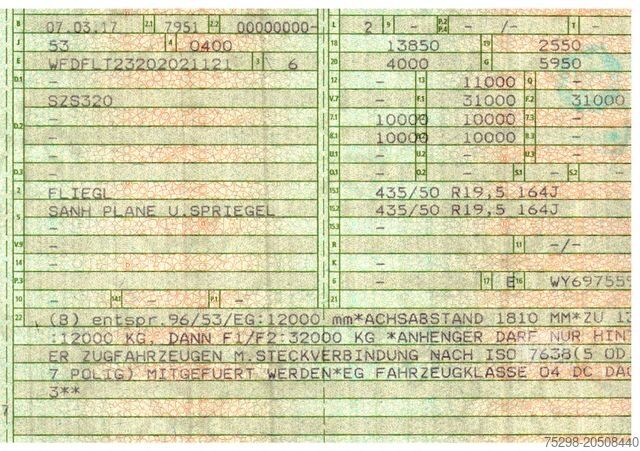 B 07.03.17 2.1 7951 2.2 00000000- L 2 9 - P.2 P.4 - /- T -
J 53 4 0400 18 13850 19 2550
E WFDFLT23202021121 3 6 20 4000 G 5950
D.1 - 12 - 13 11000 Q -
SZS320 V.7 - F.1 31000 F.2 31000
D.2 - 7.1 10000 7.2 10000 7.3 -
- 8.1 10000 8.2 10000 8.3 -
- U.1 - U.2 - U.3 -
D.3 - O.1 - O.2 - S.1 - S.2 -
2 FLIEGL 15.1 435/50 R19,5 164J
5 SANH PLANE U.SPRIEGEL 15.2 435/50 R19,5 164J
- 15.3 -
V.9 - R - 11 -/-
14 - K -
P.3 - 6 - 17 E 16 WY697555
10 - 14.1 - P.1 - 21
22 (8) entspr.96/53/EG:12000 mm*ACHSABSTAND 1810 MM*ZU 13
:12000 KG, DANN F1/F2:32000 KG *ANHENGER DARF NUR HINT
ER ZUGFAHRZEUGEN M.STECKVERBINDUNG NACH ISO 7638(5 OD
7 POLIG) MITGEFUERT WERDEN*EG FAHRZEUGKLASSE O4 DC DAC
3**
7
75298-20508440